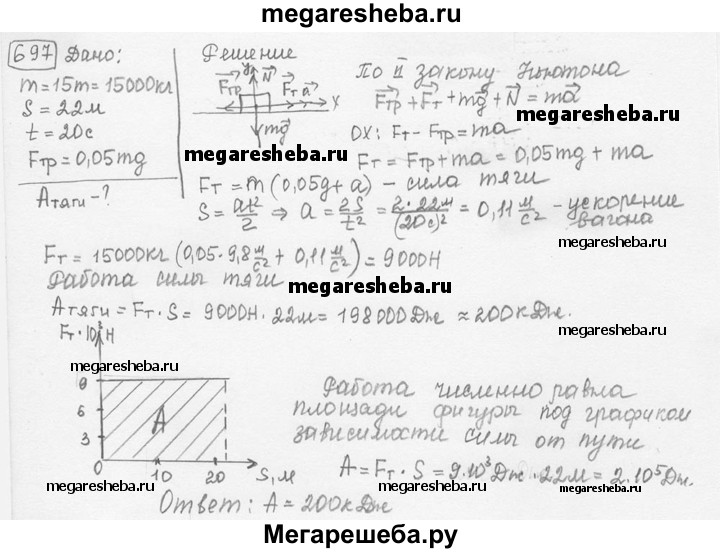 megaresheba.ru
697 Дано:
m=15т=15000кг
S=22м
t=20с
Fтр=0,05mg
Aтяги-?
Решение
y N
Fтр Fт a x
mg
megaresheba.ru
По II закону Ньютона
Fтр+Fт+mg+N=ma
megaresheba.ru
OX: Fт-Fтр=ma
Fт=Fтр+ma=0,05mg+ma
Fт=m(0,05g+a) - сила тяги
S=at²/2 ⇒ a=2S/t²=2·22м/(20с)²=0,11м/с² - ускорение вагона
megaresheba.ru
Fт=15000кг(0,05·9,8м/с²+0,11м/с²)=9000Н
Работа силы тяги
megaresheba.ru
Aтяги=Fт·S=9000Н·22м=198000Дж≈200кДж.
Fт·10³Н
megaresheba.ru
megaresheba.ru
9
6
3
0
A
10 20 S,м
Работа численно равна
площади фигуры под графиком
зависимости силы от пути
A=Fт·S=9·10³Дж·22м=2·10⁵Дж.
megaresheba.ru
megaresheba.ru
Ответ: A=200кДж
Мегарешеба.ру